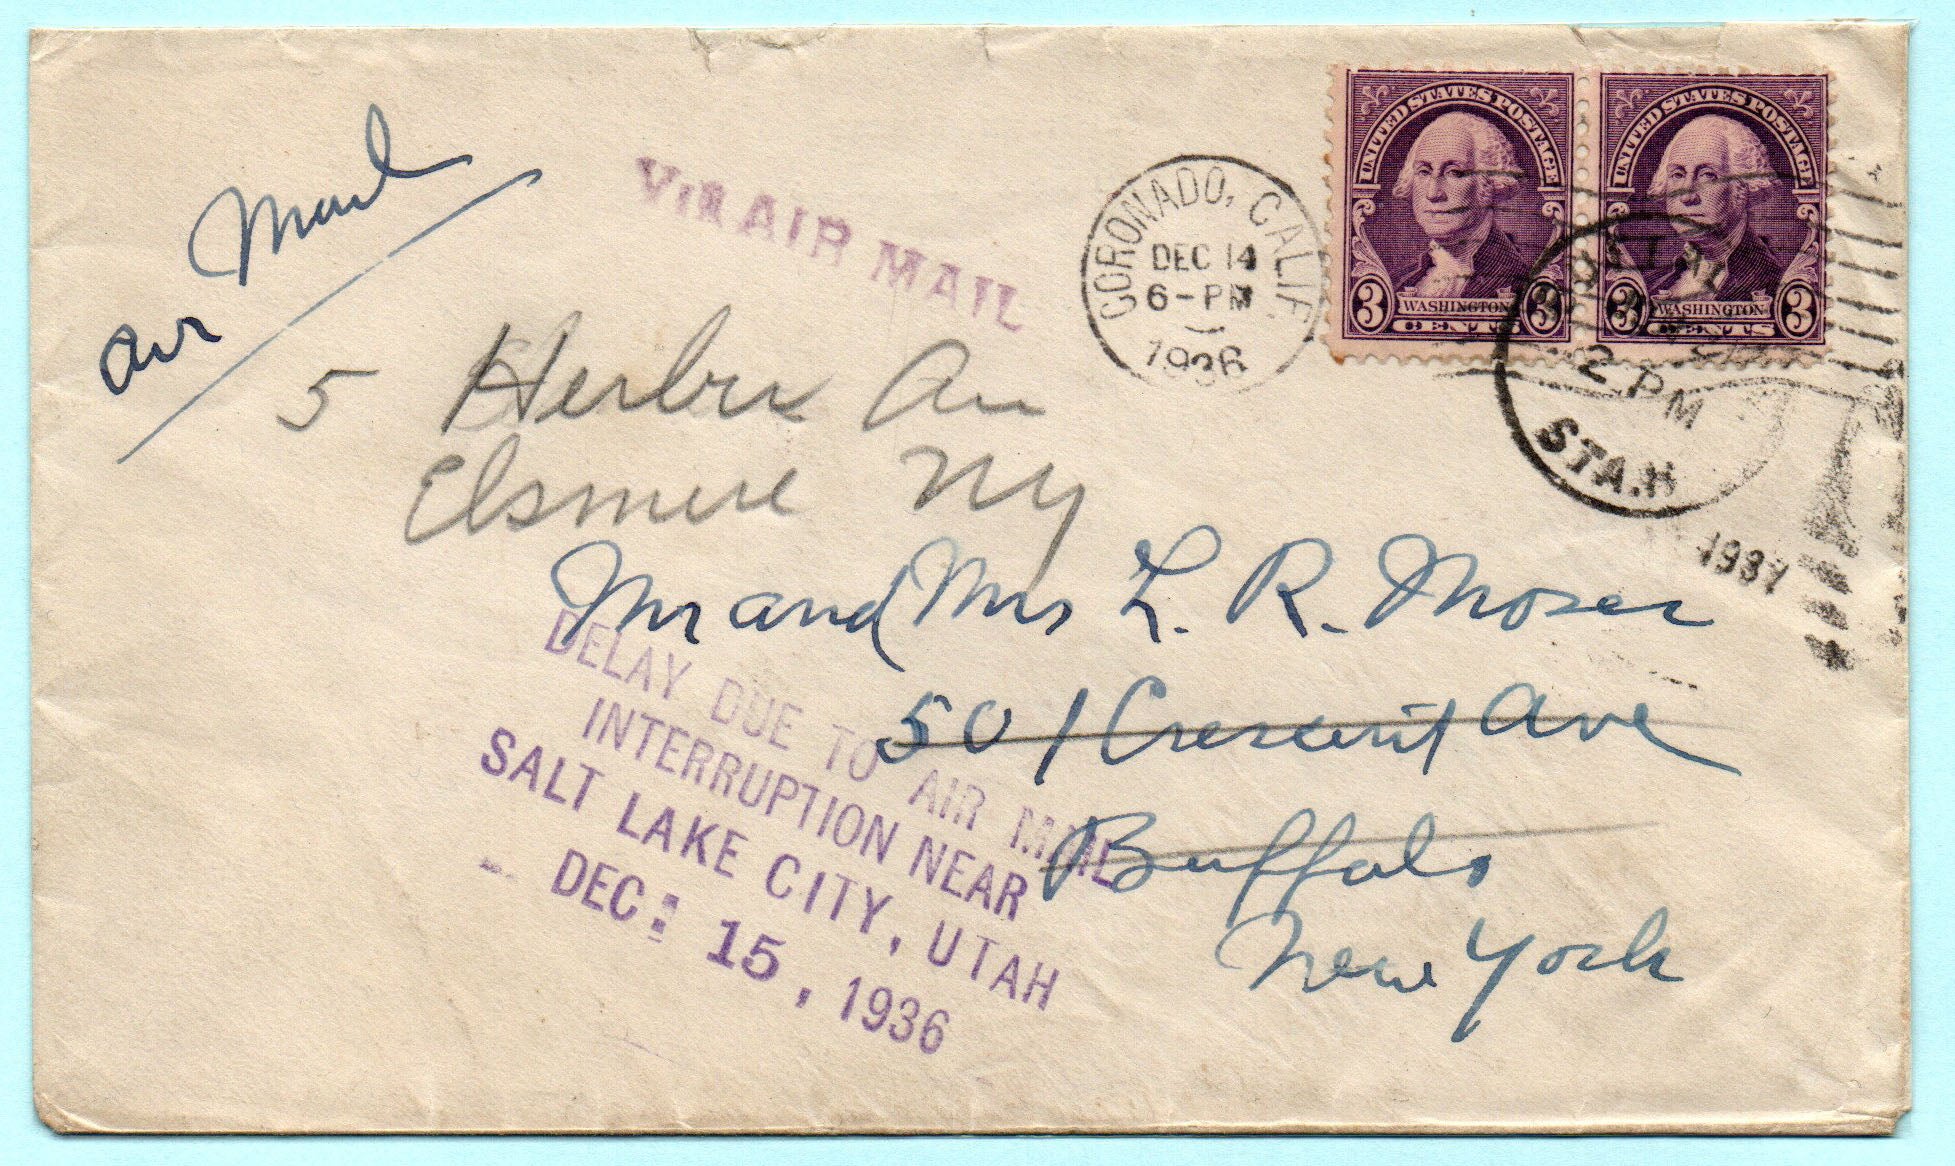 Air Mail
VIA AIR MAIL
CORONADO, CALIF.
DEC 14
6-PM
1936
UNITED STATES POSTAGE
3 WASHINGTON 3
CENTS
UNITED STATES POSTAGE
3 WASHINGTON 3
CENTS
2 PM
STA.
1937
5 Herber Av
Elsmere NY
Mr and Mrs L. R. Moser
501 Crescent Ave
Buffalo
New York
DELAY DUE TO AIR MAIL
INTERRUPTION NEAR
SALT LAKE CITY, UTAH
DEC. 15, 1936